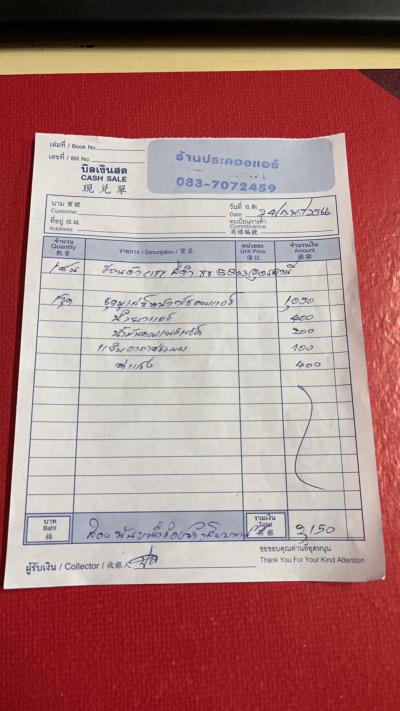 เล่มที่ / Book No.
เลขที่ / Bill No.
บิลเงินสด
CASH SALE
現 兑 單
ร้านประคองแอร์
083-7072459
นาม 寶號
Customer
วันที่ 日期
Date 24/ก.พ./2566
ที่อยู่ 住址
Address
ทะเบียนการค้า
Commlicence
商標編號
จำนวน
Quantity
數量
รายการ / Description / 貨名
หน่วยละ
Unit Price
備註
จำนวนเงิน
Amount
銀額
1 คัน
1 ชุด 1,050
น้ำยาแอร์ 400
200
100
ค่าแรง 400
บาท
Baht
銖
สองพันหนึ่งร้อยห้าสิบบาท
รวมเงิน
Total
共銀
2,150
ผู้รับเงิน / Collector / 收銀人
ขอขอบคุณท่านที่อุดหนุน
Thank You For Your Kind Attention